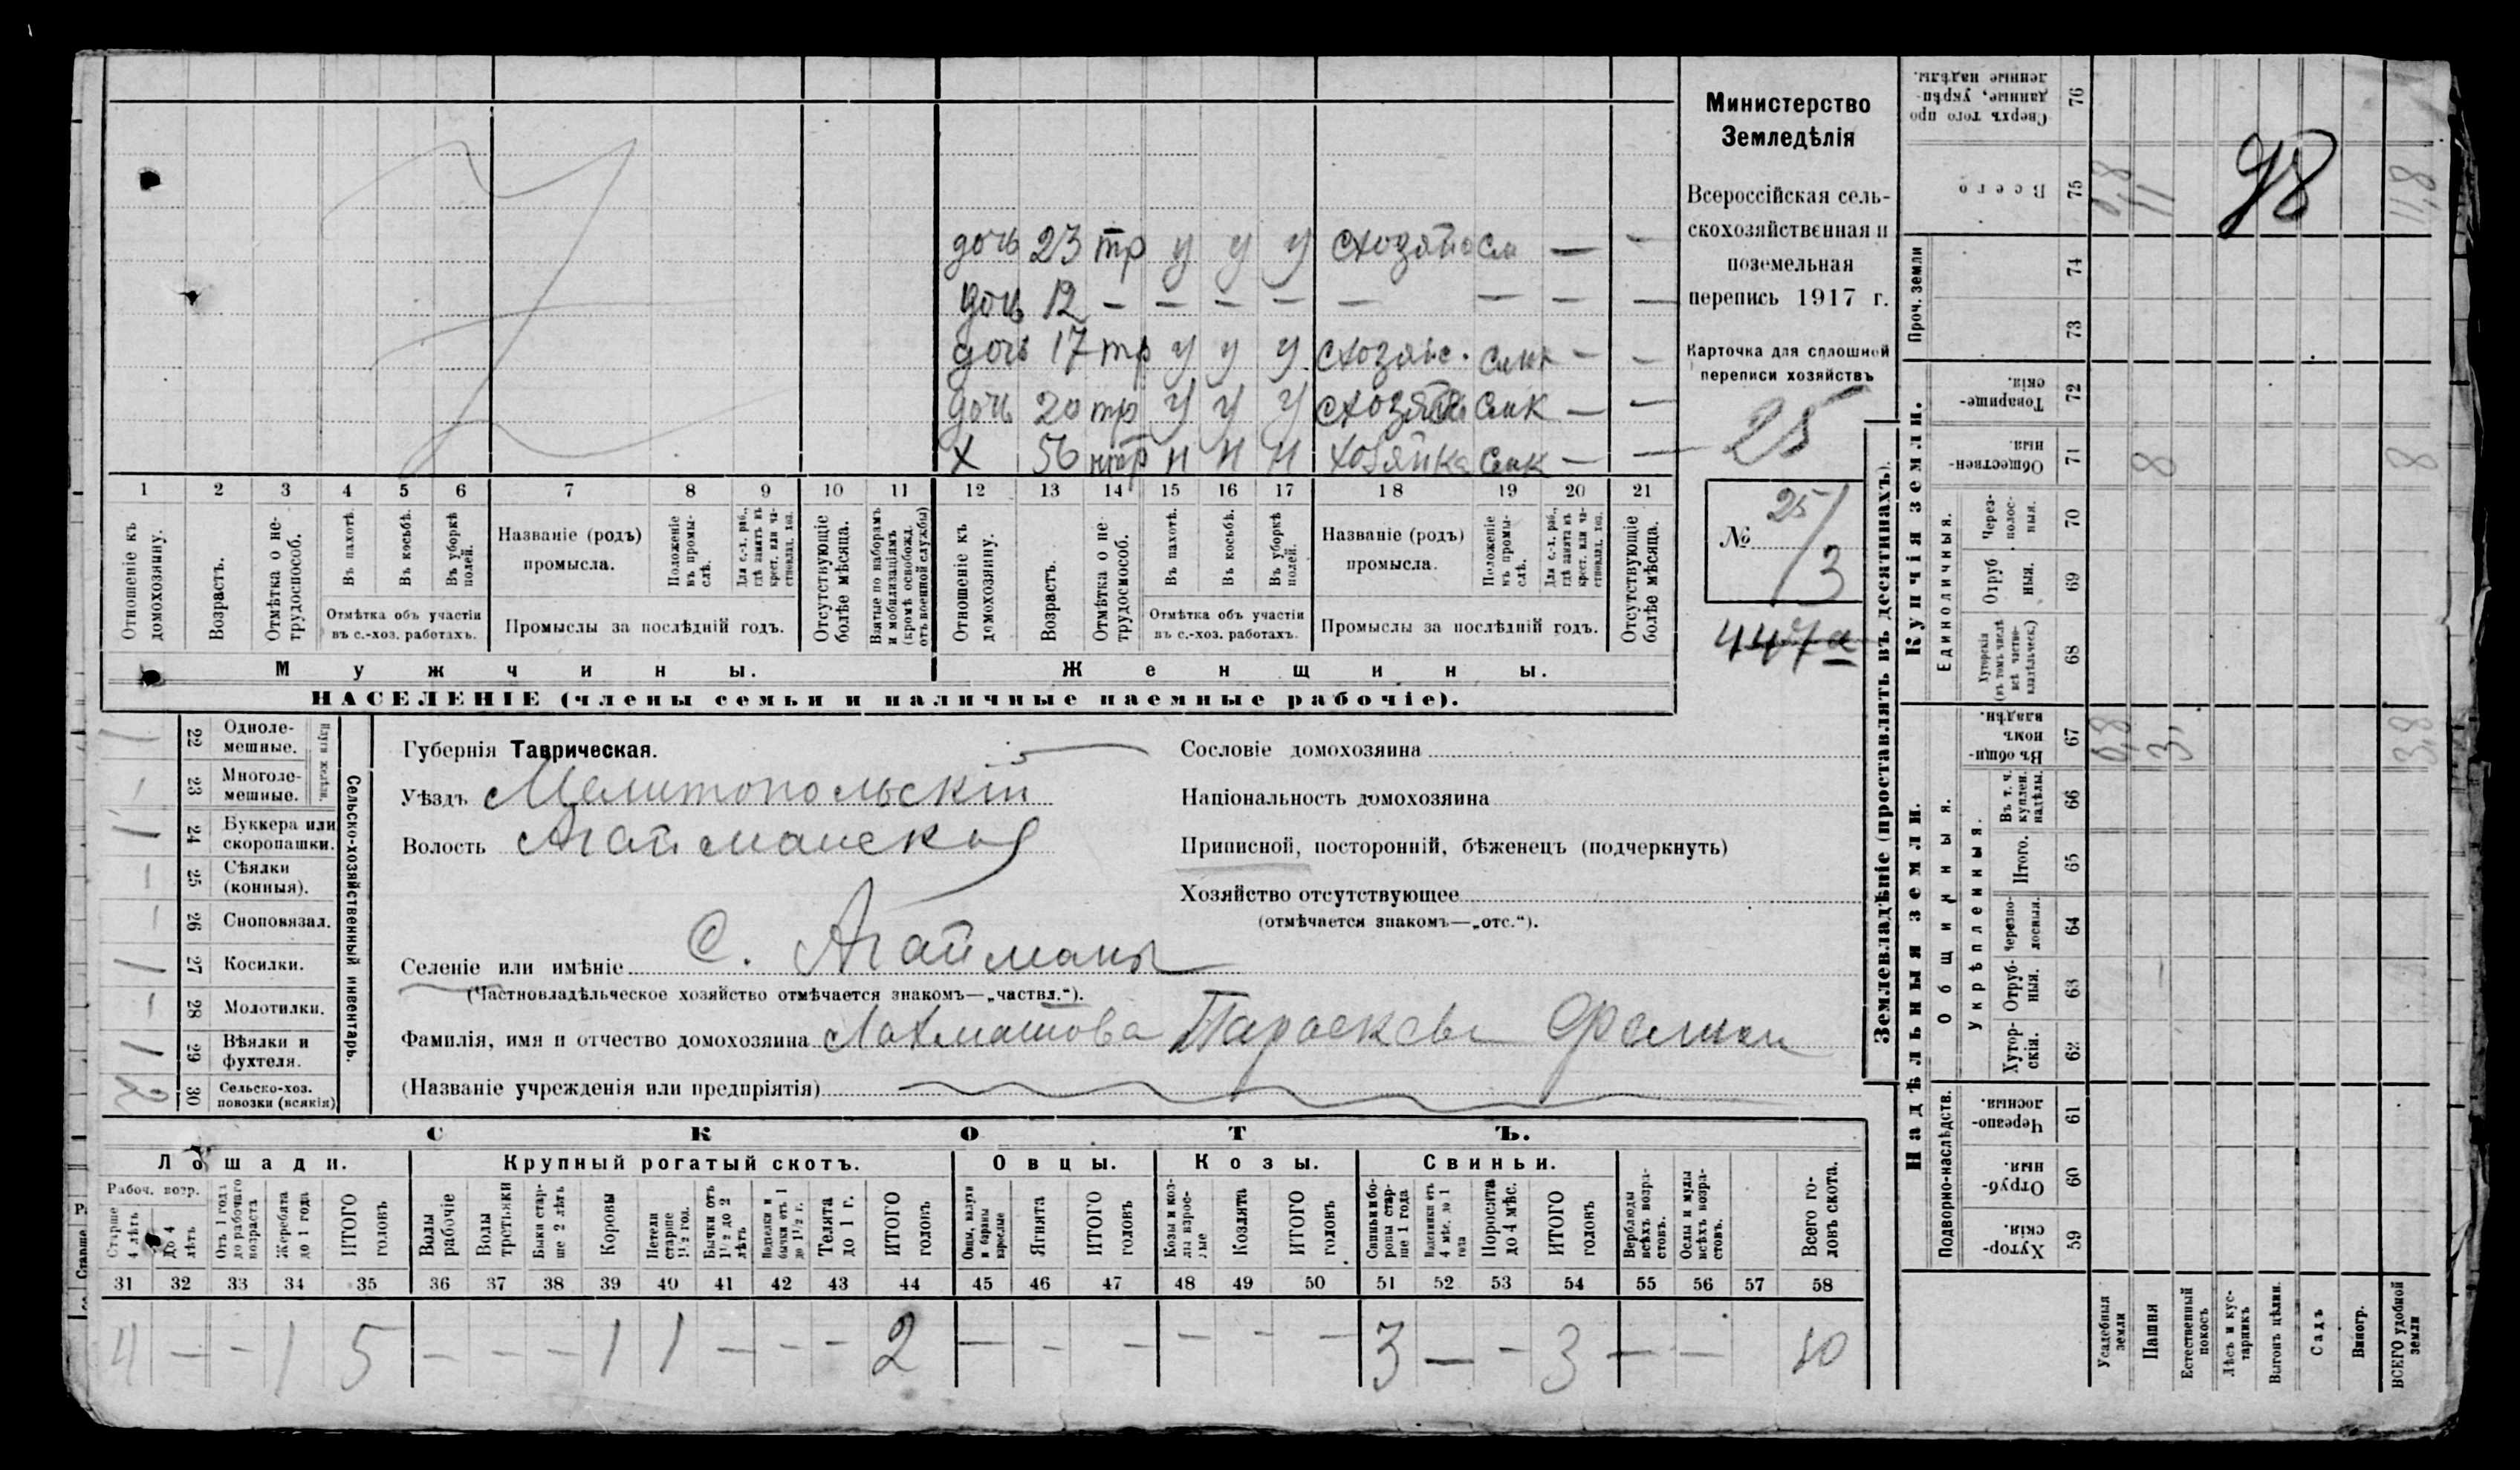 дочь 23 тр у у у
дочь 12 — — — — — — — —
дочь 17 тр у у у схозяйс. — —
дочь 20 тр у у у — —
х 56 нтр н н н хозяйка — —
1 2 3 4 5 6 7 8 9 10 11 12 13 14 15 16 17 18 19 20 21
Отношеніе къ домохозяину.
Возрастъ.
Отмѣтка о не-трудоспособ.
Въ пахотѣ.
Въ косьбѣ.
Въ уборкѣ полей.
Отмѣтка объ участіи
въ с.-хоз. работахъ.
Названіе (родъ)
промысла.
Положеніе въ промы-слѣ.
Для с.-х. раб., гдѣ занятъ въ крест. или ча-стновлад. хоз.
Промыслы за послѣдній годъ.
Отсутствующіе болѣе мѣсяца.
Взятые по наборамъ и мобилизаціямъ (кромѣ освобожд. отъ военной службы)
Отношеніе къ домохозяину.
Возрастъ.
Отмѣтка о не трудоспособ.
Въ пахотѣ.
Въ косьбѣ.
Въ уборкѣ полей.
Отмѣтка объ участіи
въ с.-хоз. работахъ.
Названіе (родъ)
промысла.
Положеніе въ промы-слѣ.
Для с.-х. раб., гдѣ занята въ крест. или ча-стновлад. хоз.
Промыслы за послѣдній годъ.
Отсутствующіе болѣе мѣсяца.
Мужчины.
Женщины.
НАСЕЛЕНІЕ (члены семьи и наличные наемные рабочіе).
Министерство
Земледѣлія
Всероссійская сель-
скохозяйственная и
поземельная
перепись 1917 г.
Карточка для сплошной
переписи хозяйствъ
25
№ 25/3
447а
Сельско-хозяйственный инвентарь.
22 Одноле-мешные. 1
23 Многоле-мешные. —
24 Буккера или скоропашки. 1
25 Сѣялки (конныя). —
26 Сноповязал. —
27 Косилки. 1
28 Молотилки. —
29 Вѣялки и фухтеля. 1
30 Сельско-хоз. повозки (всякія) 2
Губернія Таврическая.
Уѣздъ Мелитопольскій
Волость Агайманская
Селеніе или имѣніе С. Агайманы
(Частновладѣльческое хозяйство отмѣчается знакомъ—„частвл.“).
Фамилія, имя и отчество домохозяина Лахматова
(Названіе учрежденія или предпріятія)
Сословіе домохозяина
Національность домохозяина
Приписной, посторонній, бѣженецъ (подчеркнуть)
Хозяйство отсутствующее
(отмѣчается знакомъ—„отс.“).
СКОТЪ.
Лошади. Крупный рогатый скотъ. Овцы. Козы. Свиньи.
Рабоч. возр.
Старше 4 лѣтъ
До 4 лѣтъ
Отъ 1 года до рабочаго возраста
Жеребята до 1 года
ИТОГО головъ
Волы рабочіе
Волы третьяки
Быки стар-ше 2 лѣтъ
Коровы
Нетели старше 1½ год.
Бычки отъ 1½ до 2 лѣтъ
Телята до 1 г.
ИТОГО головъ
Ягнята
ИТОГО головъ
Козлята
ИТОГО головъ
Поросята до 4 мѣс.
ИТОГО головъ
Верблюды всѣхъ возра-стовъ.
Ослы и мулы всѣхъ возра-стовъ.
Всего го-ловъ скота.
31 32 33 34 35 36 37 38 39 40 41 42 43 44 45 46 47 48 49 50 51 52 53 54 55 56 57 58
4 — — 1 5 — — — 1 1 — — — 2 — — — — — — 3 — — 3 — — 10
Землевладѣніе (проставлять въ десятинахъ).
Надѣльныя земли.
Купчія земли.
Проч. земли
Подворно-наслѣдств.
Общинныя.
Укрѣпленныя.
Единоличныя.
76 Сверхъ того про данные, укрѣп-ленные надѣлы.
75 Всего 11 11,8
98
74
73
72 Товарище-скія.
71 Обществен-ныя. 8 8
70 Через-полос-ныя.
69 Отруб ныя.
68 Хуторскія (въ томъ числѣ всѣ частно-владѣльческ.)
67 Въ общи-номъ владѣн. 0,8 3, 3,8
66 Въ т. ч. куплен. надѣлы.
65 Итого.
64 Черезпо-лосныя.
63 Отруб-ныя.
62 Хутор-скія.
61 Черезпо-лосныя.
60 Отруб-ныя.
59 Хутор-скія.
Усадебныя земли
Пашня
Естественный покосъ
Лѣсъ и кус-тарникъ
Выгонъ цѣлин.
Садъ
Виногр.
ВСЕГО удобной земли